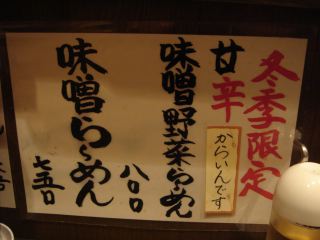 冬季限定
甘辛
からいんです
味噌野菜らーめん
八〇〇
味噌らーめん
七五〇